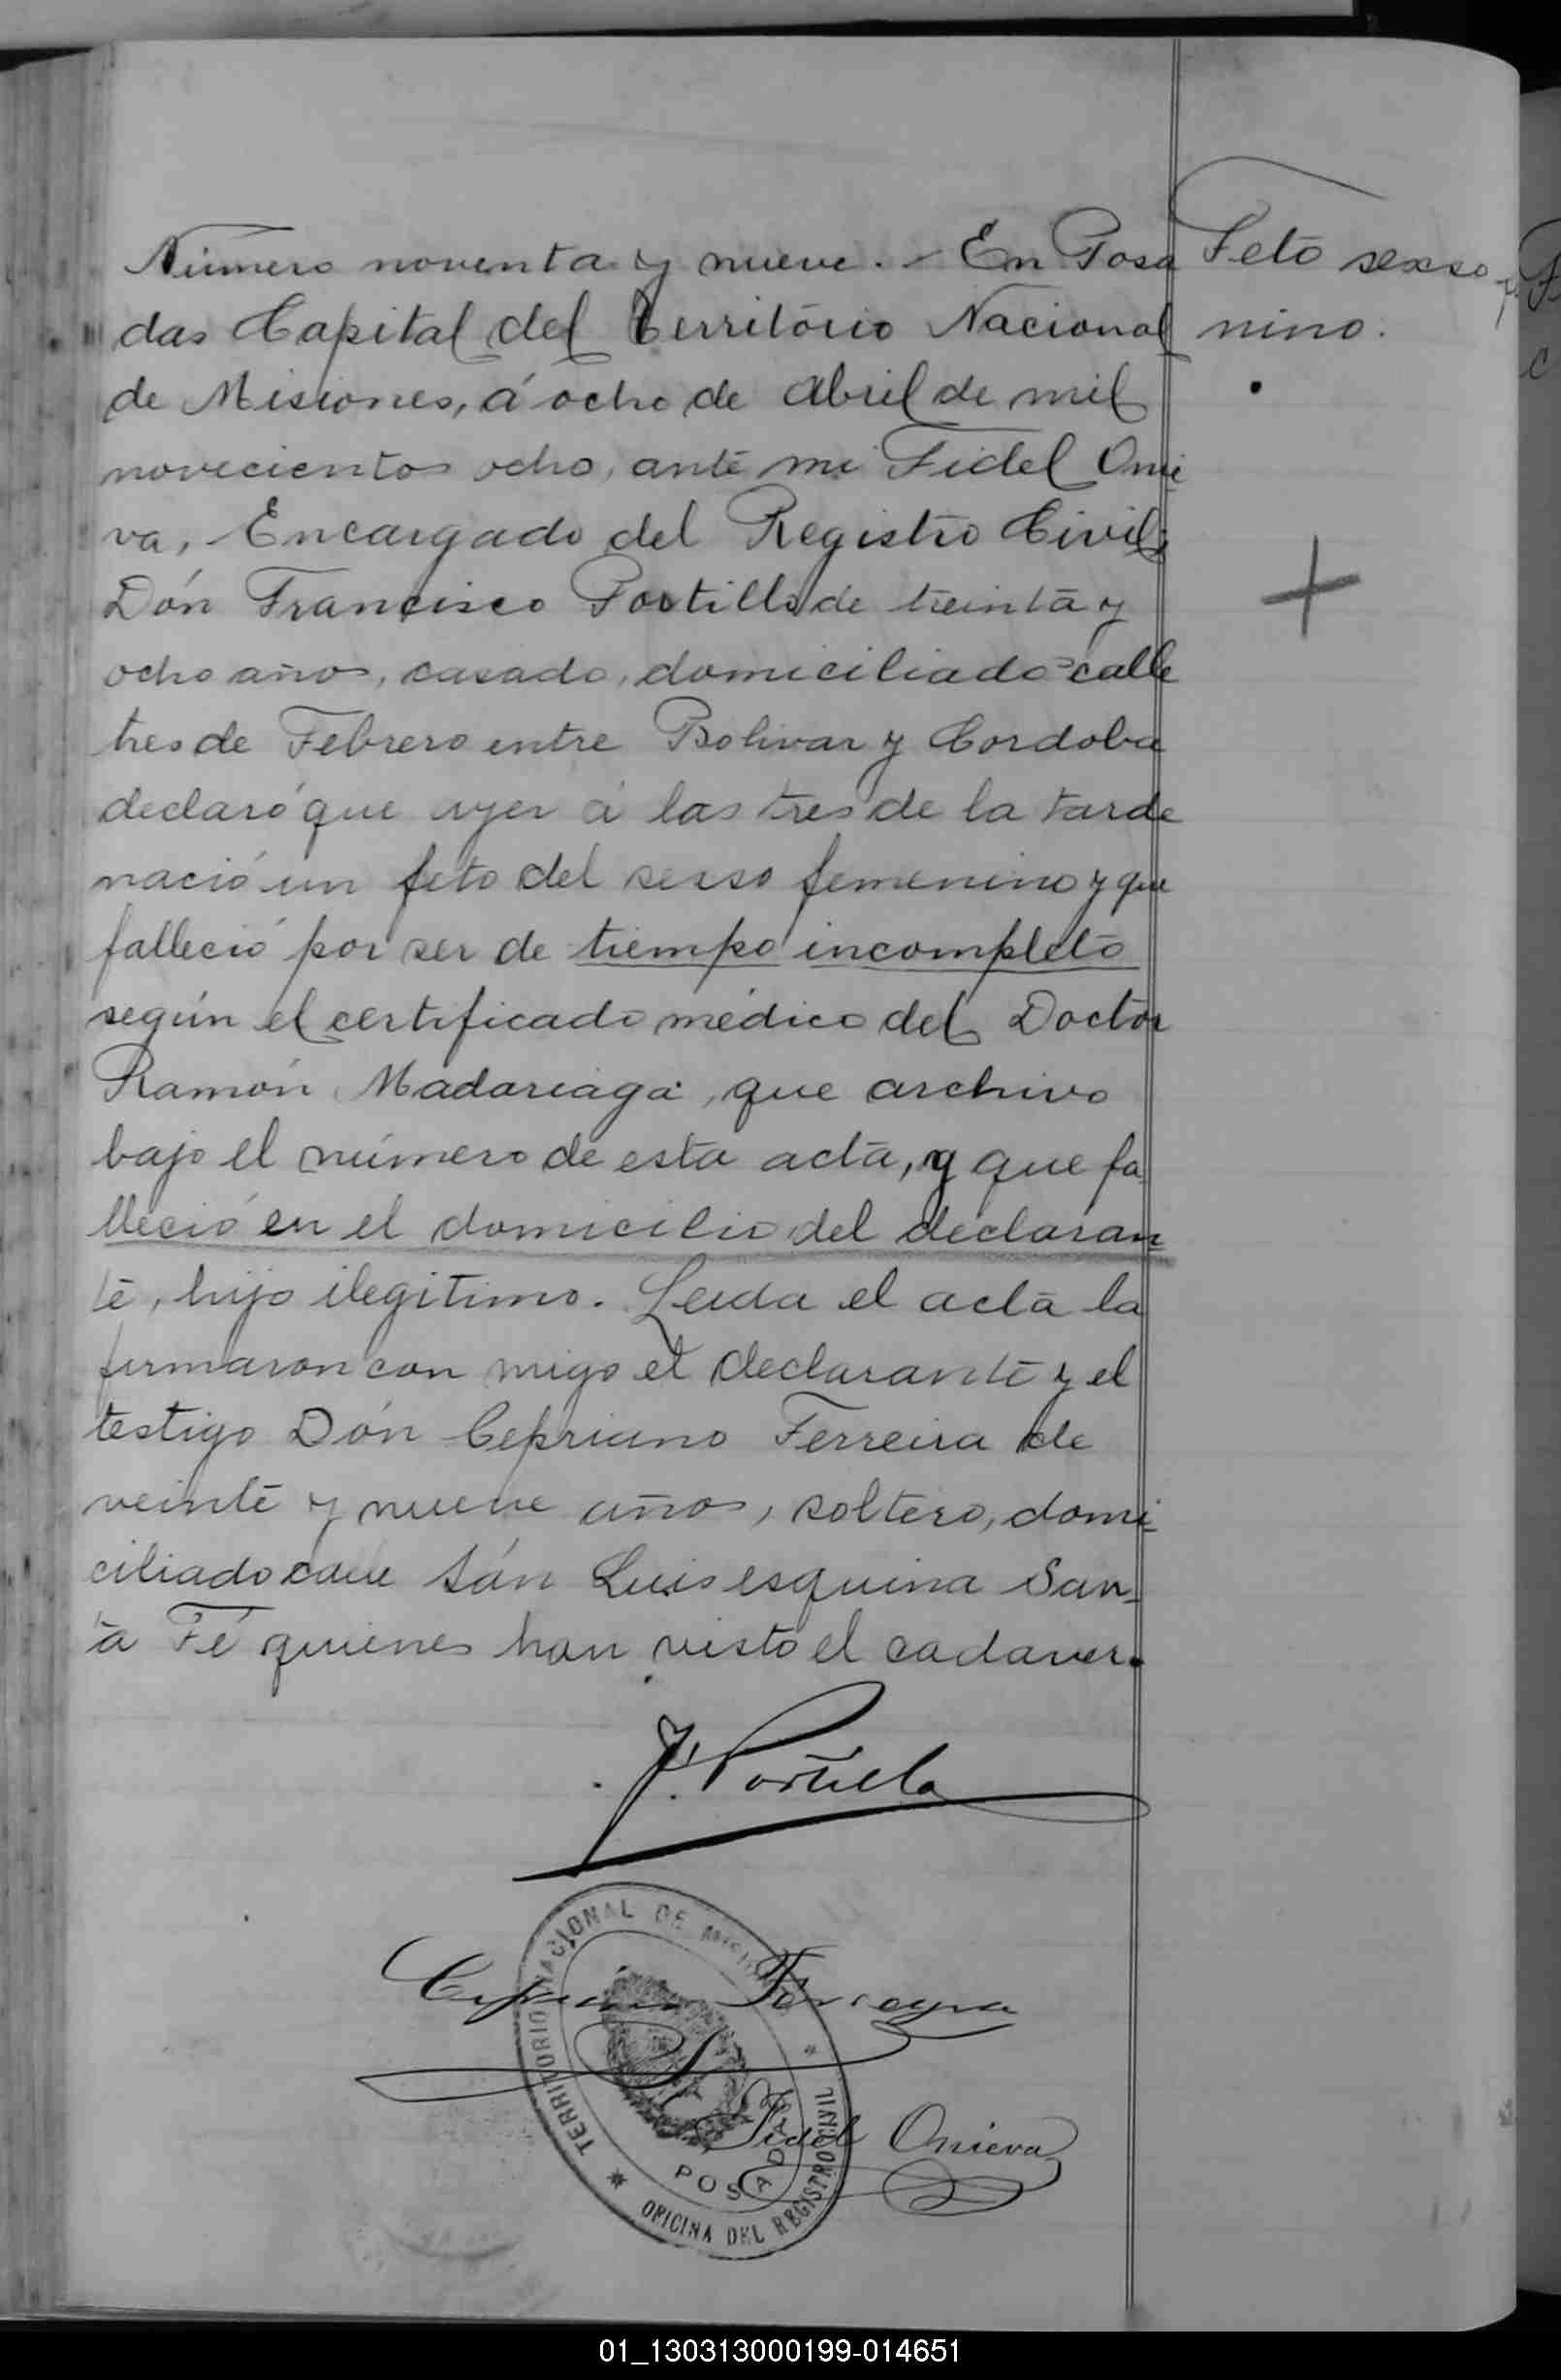 Número noventa y nueve. - En Posa
das Capital del Territorio Nacional
de Misiones, á ocho de Abril de mil
novecientos ocho, ante mi Fidel Oni
va, Encargado del Registro Civil;
Don Francisco Portillo de treinta y
ocho años, casado, domiciliado calle
tres de Febrero entre Bolivar y Cordoba
declaró que ayer á las tres de la tarde
nació un feto del sexso femenino y que
falleció por ser de tiempo incompleto
según el certificado médico del Doctor
Ramón Madariaga, que archivo
bajo el número de esta acta, y que fa
lleció en el domicilio del declaran
te, hijo ilegitimo. Leida el acta la
firmaron con migo el declarante y el
testigo Don Cepriano Ferreira de
veinte y nueve años, soltero, domi-
ciliado calle San Luis esquina San-
ta Fé quienes han visto el cadaver.
Feto sexso
nino.
F. Portillo
Ferreyra
Fidel Onieva
TERRITORIO NACIONAL DE MISIONES
OFICINA DEL REGISTRO CIVIL
POSADAS
01_130313000199-014651